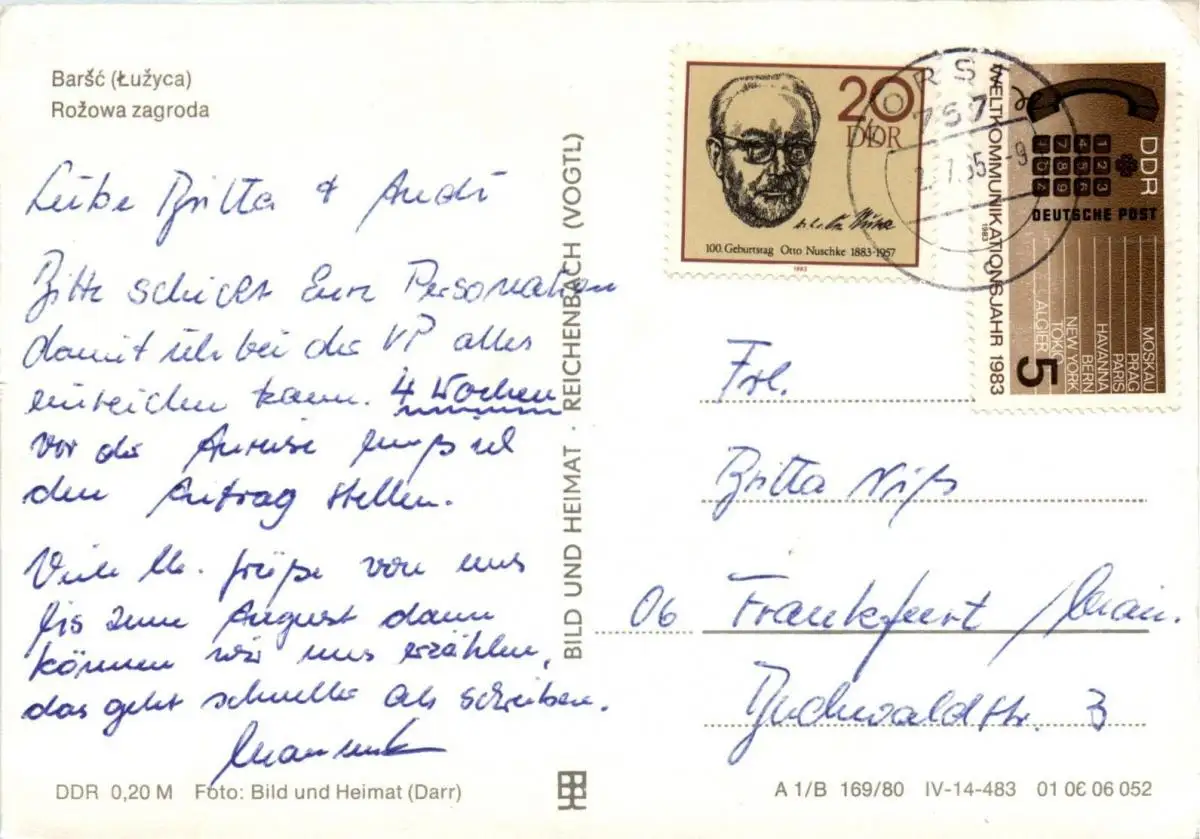 Baršć (Łužyca)
Rožowa zagroda
Liebe Britta & Andi
Bitte schickt Eure Personalien
damit ich bei der VP alles
einreichen kann. 4 Wochen
vor der Anreise muß ich
den Antrag stellen.
Viele Grüße von uns
bis zum August dann
können wir uns erzählen,
das geht schneller als schreiben.
DDR 0,20 M Foto: Bild und Heimat (Darr)
BILD UND HEIMAT · REICHENBACH (VOGTL)
20
DDR
100. Geburtstag Otto Nuschke 1883-1957
1983
757
WELTKOMMUNIKATIONSJAHR 1983
1983
DDR
1 2 3
4 5 6
7 8 9
DEUTSCHE POST
MOSKAU
PRAG
PARIS
HAVANNA
BERN
NEW YORK
TOKIO
ALGIER
5
Frl.
Britta Niß
06 Frankfurt / Main.
Buchwaldstr. 3
A 1/B 169/80 IV-14-483 01 0€ 06 052